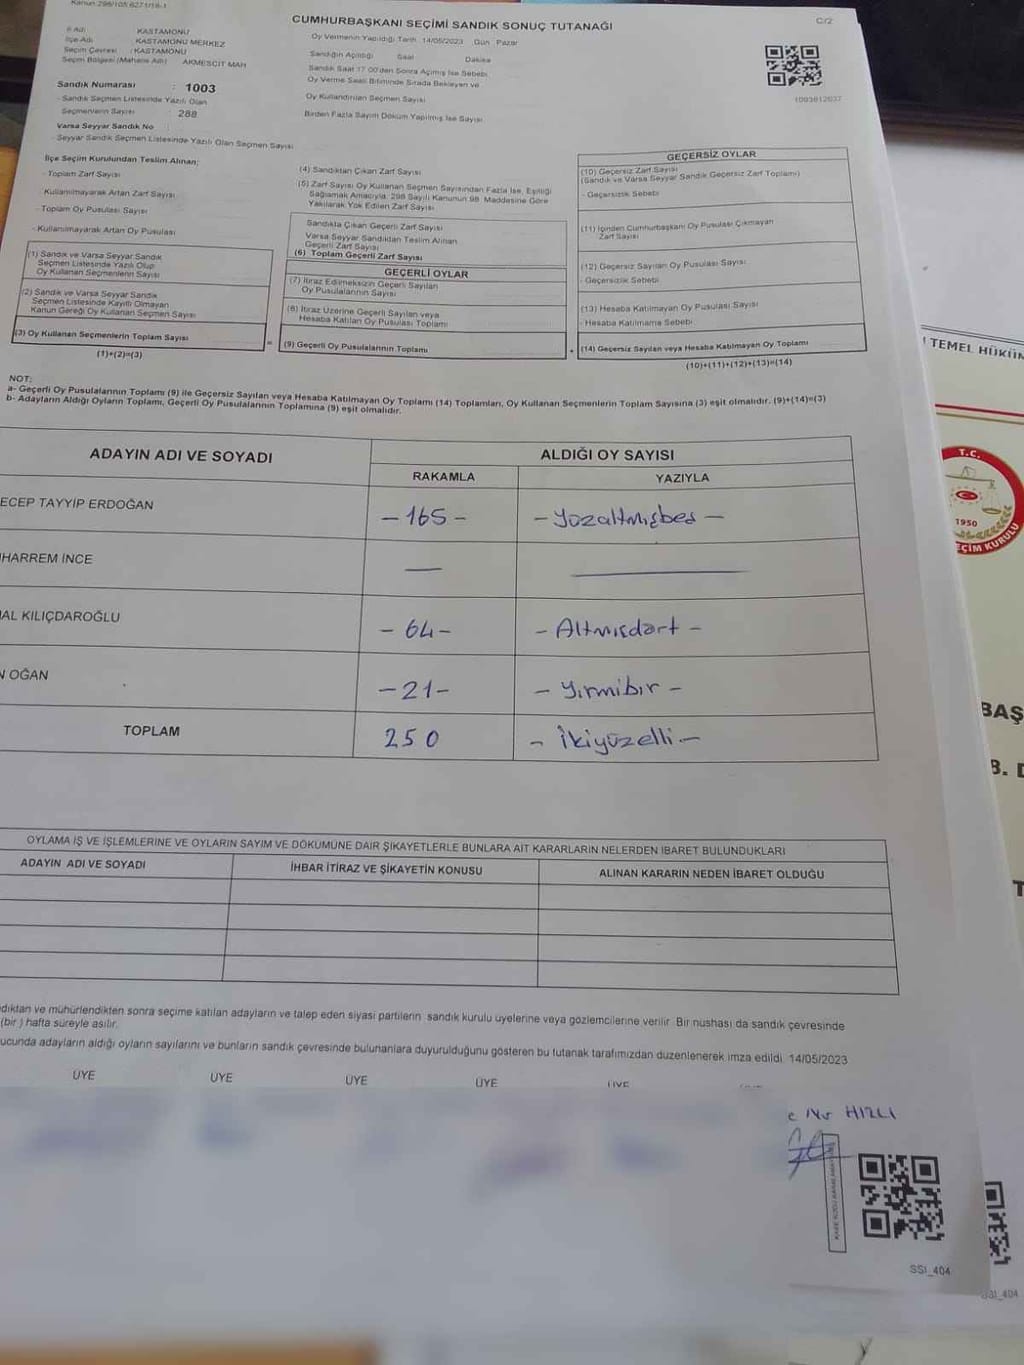 Kanun:298/105 6271/18-1
CUMHURBAŞKANI SEÇİMİ SANDIK SONUÇ TUTANAĞI
C/2
İl Adı : KASTAMONU
İlçe Adı : KASTAMONU MERKEZ
Seçim Çevresi : KASTAMONU
Seçim Bölgesi (Mahalle Adı) : AKMESCİT MAH
Oy Vermenin Yapıldığı Tarih 14/05/2023 Gün Pazar
Sandığın Açıldığı Saat Dakika
Sandık Saat 17 00'den Sonra Açılmış İse Sebebi
Oy Verme Saati Bitiminde Sırada Bekleyen ve
Oy Kullandırılan Seçmen Sayısı
Birden Fazla Sayım Döküm Yapılmış İse Sayısı
1003612037
Sandık Numarası : 1003
- Sandık Seçmen Listesinde Yazılı Olan
Seçmenlerin Sayısı : 288
Varsa Seyyar Sandık No
- Seyyar Sandık Seçmen Listesinde Yazılı Olan Seçmen Sayısı
İlçe Seçim Kurulundan Teslim Alınan;
- Toplam Zarf Sayısı
- Kullanılmayarak Artan Zarf Sayısı
- Toplam Oy Pusulası Sayısı
- Kullanılmayarak Artan Oy Pusulası
(1) Sandık ve Varsa Seyyar Sandık
Seçmen Listesinde Yazılı Olup
Oy Kullanan Seçmenlerin Sayısı
(2) Sandık ve Varsa Seyyar Sandık
Seçmen Listesinde Kayıtlı Olmayan
Kanun Gereği Oy Kullanan Seçmen Sayısı
(3) Oy Kullanan Seçmenlerin Toplam Sayısı
(1)+(2)=(3)
=
(4) Sandıktan Çıkan Zarf Sayısı
(5) Zarf Sayısı Oy Kullanan Seçmen Sayısından Fazla İse, Eşitliği
Sağlamak Amacıyla, 298 Sayılı Kanunun 98. Maddesine Göre
Yakılarak Yok Edilen Zarf Sayısı
Sandıkta Çıkan Geçerli Zarf Sayısı
Varsa Seyyar Sandıktan Teslim Alınan
Geçerli Zarf Sayısı
(6) Toplam Geçerli Zarf Sayısı
GEÇERLİ OYLAR
(7) İtiraz Edilmeksizin Geçerli Sayılan
Oy Pusulalarının Sayısı
(8) İtiraz Üzerine Geçerli Sayılan veya
Hesaba Katılan Oy Pusulası Toplamı
(9) Geçerli Oy Pusulalarının Toplamı
+
GEÇERSİZ OYLAR
(10) Geçersiz Zarf Sayısı
(Sandık ve Varsa Seyyar Sandık Geçersiz Zarf Toplamı)
- Geçersizlik Sebebi
(11) İçinden Cumhurbaşkanı Oy Pusulası Çıkmayan
Zarf Sayısı
(12) Geçersiz Sayılan Oy Pusulası Sayısı
- Geçersizlik Sebebi
(13) Hesaba Katılmayan Oy Pusulası Sayısı
- Hesaba Katılmama Sebebi
(14) Geçersiz Sayılan veya Hesaba Katılmayan Oy Toplamı
(10)+(11)+(12)+(13)=(14)
NOT:
a- Geçerli Oy Pusulalarının Toplamı (9) ile Geçersiz Sayılan veya Hesaba Katılmayan Oy Toplamı (14) Toplamları, Oy Kullanan Seçmenlerin Toplam Sayısına (3) eşit olmalıdır. (9)+(14)=(3)
b- Adayların Aldığı Oyların Toplamı, Geçerli Oy Pusulalarının Toplamına (9) eşit olmalıdır.
ADAYIN ADI VE SOYADI ALDIĞI OY SAYISI
RAKAMLA YAZIYLA
ECEP TAYYİP ERDOĞAN -165- -Yüzaltmışbeş-
HARREM İNCE — —
AL KILIÇDAROĞLU -64- -Altmışdört-
N OĞAN -21- -Yirmibir-
TOPLAM 250 -İkiyüzelli-
OYLAMA İŞ VE İŞLEMLERİNE VE OYLARIN SAYIM VE DÖKÜMÜNE DAİR ŞİKAYETLERLE BUNLARA AİT KARARLARIN NELERDEN İBARET BULUNDUKLARI
ADAYIN ADI VE SOYADI İHBAR İTİRAZ VE ŞİKAYETİN KONUSU ALINAN KARARIN NEDEN İBARET OLDUĞU
dıktan ve mühürlendikten sonra seçime katılan adayların ve talep eden siyasi partilerin sandık kurulu üyelerine veya gözlemcilerine verilir. Bir nüshası da sandık çevresinde
(bir ) hafta süreyle asılır.
ucunda adayların aldığı oyların sayılarını ve bunların sandık çevresinde bulunanlara duyurulduğunu gösteren bu tutanak tarafımızdan düzenlenerek imza edildi 14/05/2023
ÜYE ÜYE ÜYE ÜYE ÜYE
e Nur HIZLI
SSI_404
SSI_404
TEMEL HÜKÜM
T.C.
1950
EÇİM KURULU
BAŞ
B. D
T